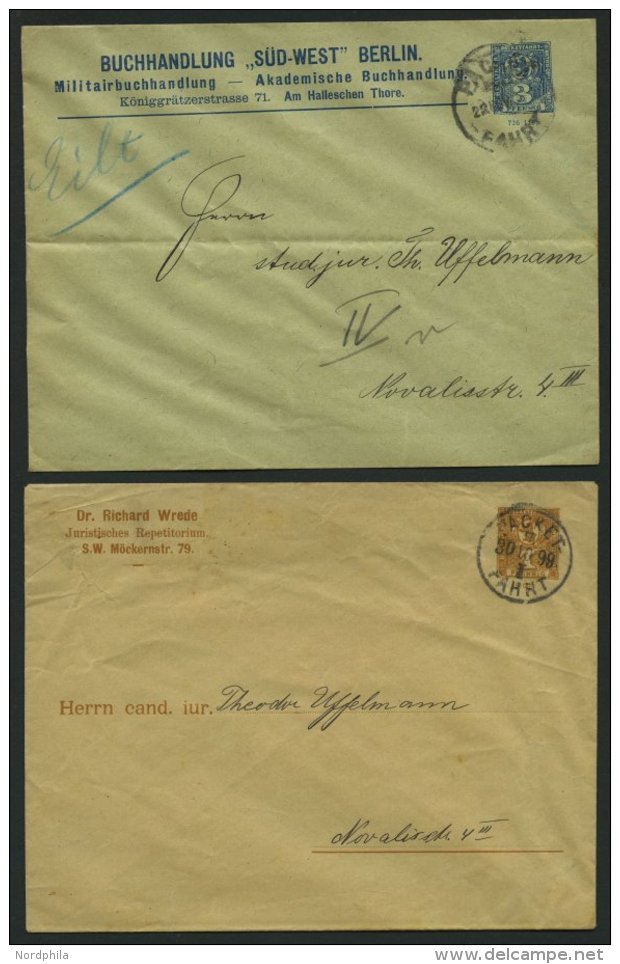 BUCHHANDLUNG „SÜD-WEST” BERLIN.
Militairbuchhandlung — Akademische Buchhandlung.
Königgrätzerstrasse 71. Am Halleschen Thore.
3
FAHRT
Eilt
Herrn
stud. jur. Th. Uffelmann
IV
Novalisstr. 4 III
Dr. Richard Wrede
Juristisches Repetitorium.
S.W. Möckernstr. 79.
PACKET
FAHRT
Herrn cand. iur. Theodor Uffelmann
Novalisstr. 4 III
Nordphila
delcampe.net